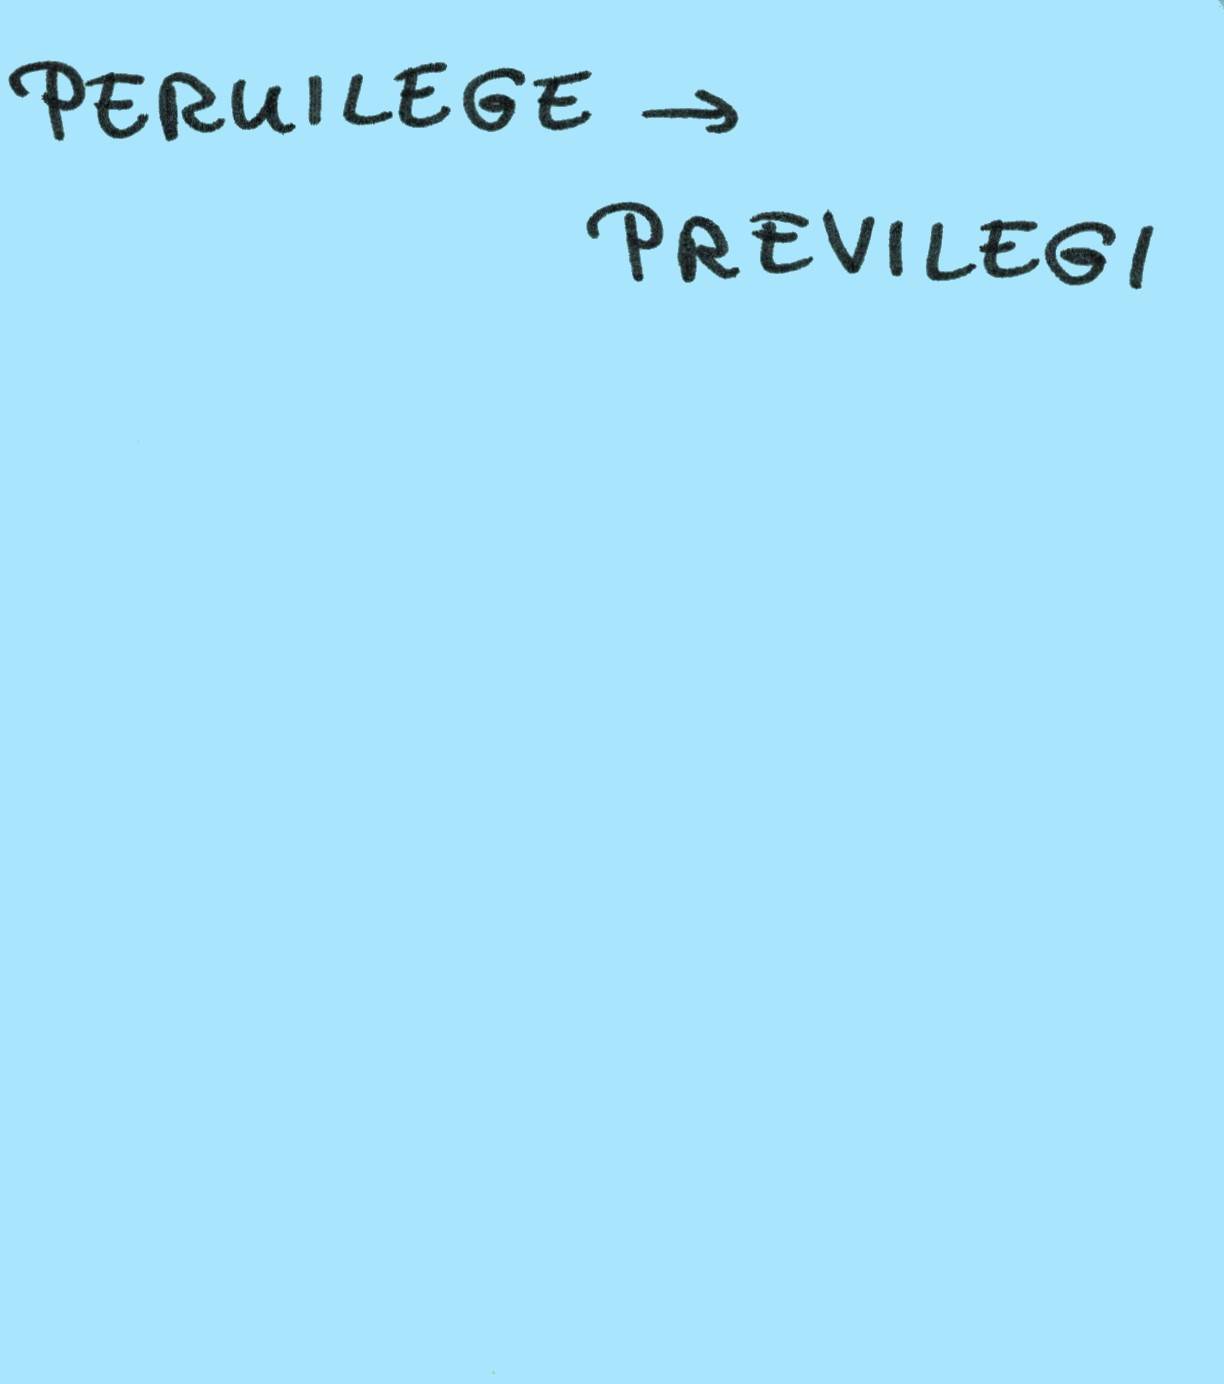 PERUILEGE →
PREVILEGI